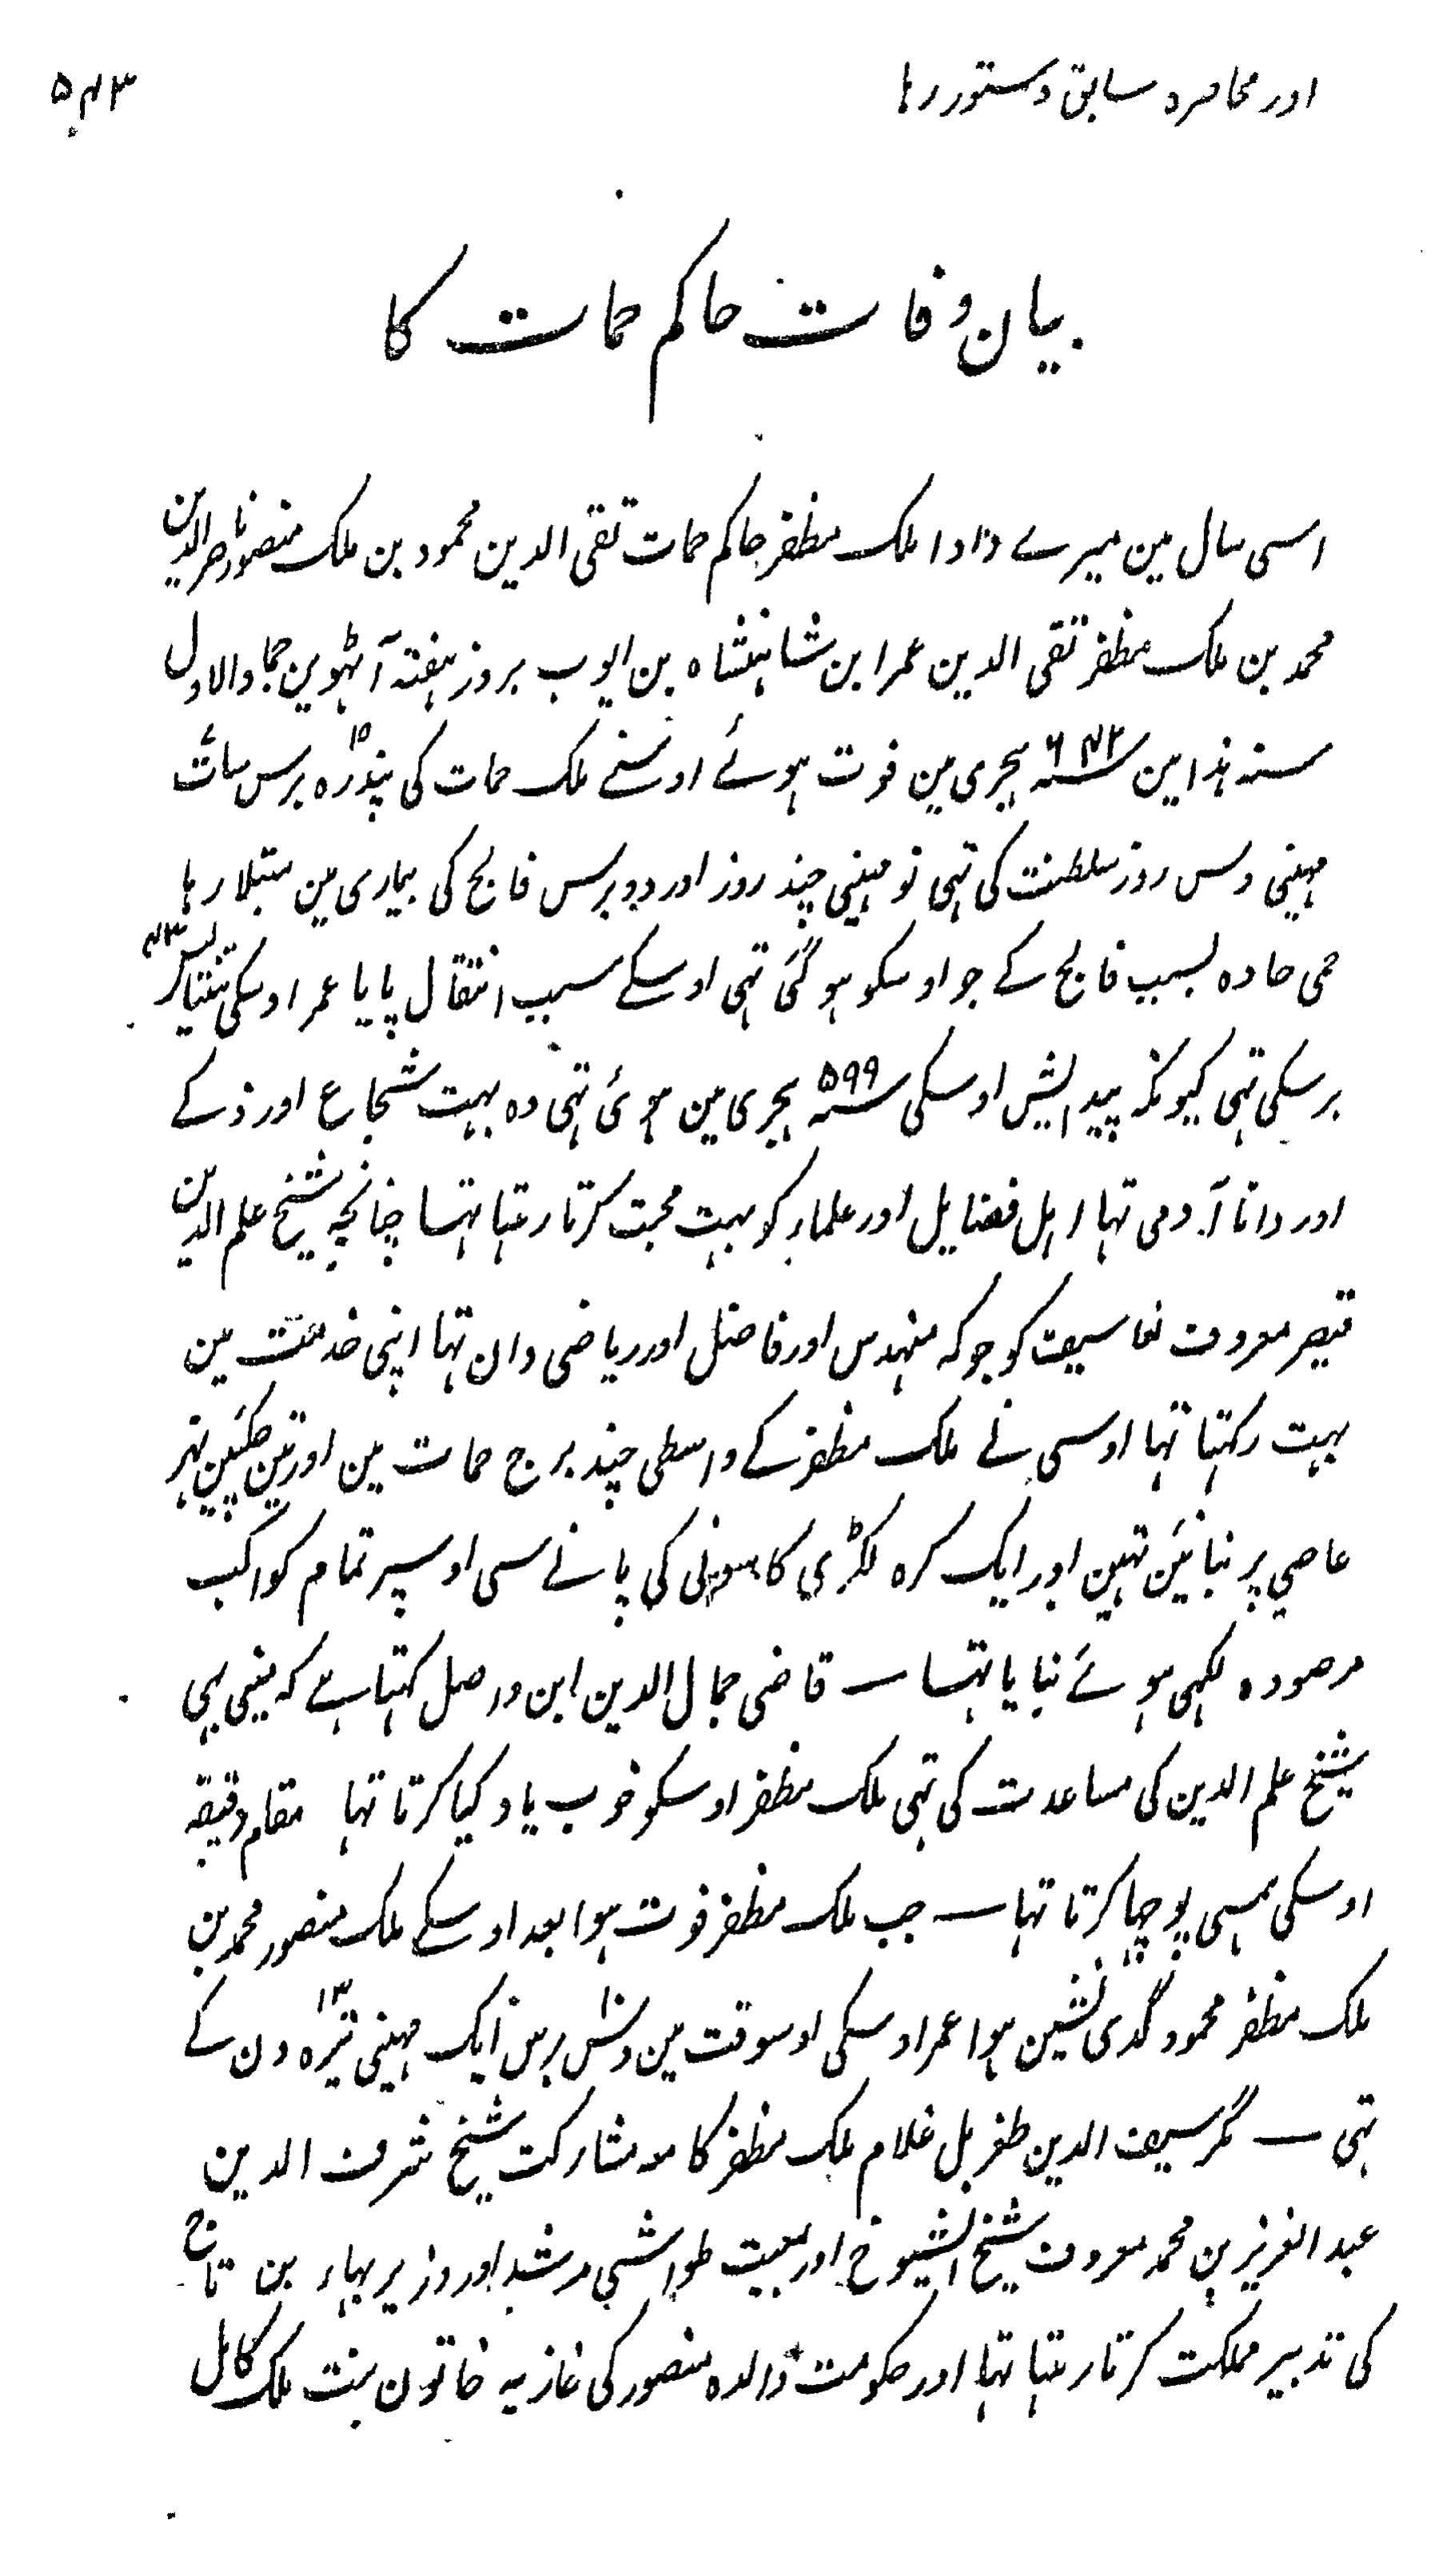 اور محاصرہ سابق دستور رہا ۵۴۳
بیان وفات حاکم حمات کا
اسی سال مین میرے دادا ملک مظفر حاکم حمات تقی الدین محمود بن ملک منصور ناصر الدین
محمد بن ملک مظفر تقی الدین عمر ابن شاہنشاہ بن ایوب بروز ہفتہ آٹہوین جماد الاول
سنہ ہذا مین سنہ ۶۴۲ ہجری مین فوت ہوئے اوسنے ملک حمات کی پندرہ ۱۵ برس سات
مہینی دس روز سلطنت کی تہی نو مہینی چند روز اور دو برس فالج کی بیماری مین مبتلا رہا
حمی حادہ بسبب فالج کے جو اوسکو ہو گئی تہی اوسکے سبب انتقال پایا عمر اوسکی تینتالیس ۴۳
برسکی تہی کیونکہ پیدایش اوسکی سنہ ۵۹۹ ہجری مین ہوئی تہی وہ بہت شجاع اور ذکے
اور دانا آدمی تہا اہل فضایل اور علماء کو بہت محبت کرتا رہتا تہا چنانچہ شیخ علم الدین
قیصر معروف تعاسیف کو جو کہ مہندس اور فاضل اور ریاضی دان تہا اپنی خدمت مین
بہت رکہتا تہا اوسی نے ملک مظفر کے واسطی چند برج حمات مین اور تین چکئین نہر
عاصی پر بنائین تہین اور ایک کرہ لکڑی کا سونی کی پانے سی اوسپر تمام کواکب
مرصودہ لکہی ہوئے بنایا تہا ــ قاضی جمال الدین ابن واصل کہتا ہے کہ مینی بہی
شیخ علم الدین کی مساعدت کی تہی ملک مظفر اوسکو خوب یاد کیا کرتا تہا مقام دقیقہ
اوسکی ہمسی پوچہا کرتا تہا ــ جب ملک مظفر فوت ہوا بعد اوسکے ملک منصور محمد بن
ملک مظفر محمود گدی نشین ہوا عمر اوسکی اوسوقت مین دس ۱۰ برس ایک مہینی تیرہ ۱۳ دن کے
تہی ــ مگر سیف الدین طغربل غلام ملک مظفر کا معہ مشارکت شیخ شرف الدین
عبد العزیز بن محمد معروف شیخ الشیوخ اور معیت طواشی مرشد اور وزیر بہاء بن تاج
کی تدبیر مملکت کرتا رہتا تہا اور حکومت والدہ منصور کی غازیہ خاتون بنت ملک کامل